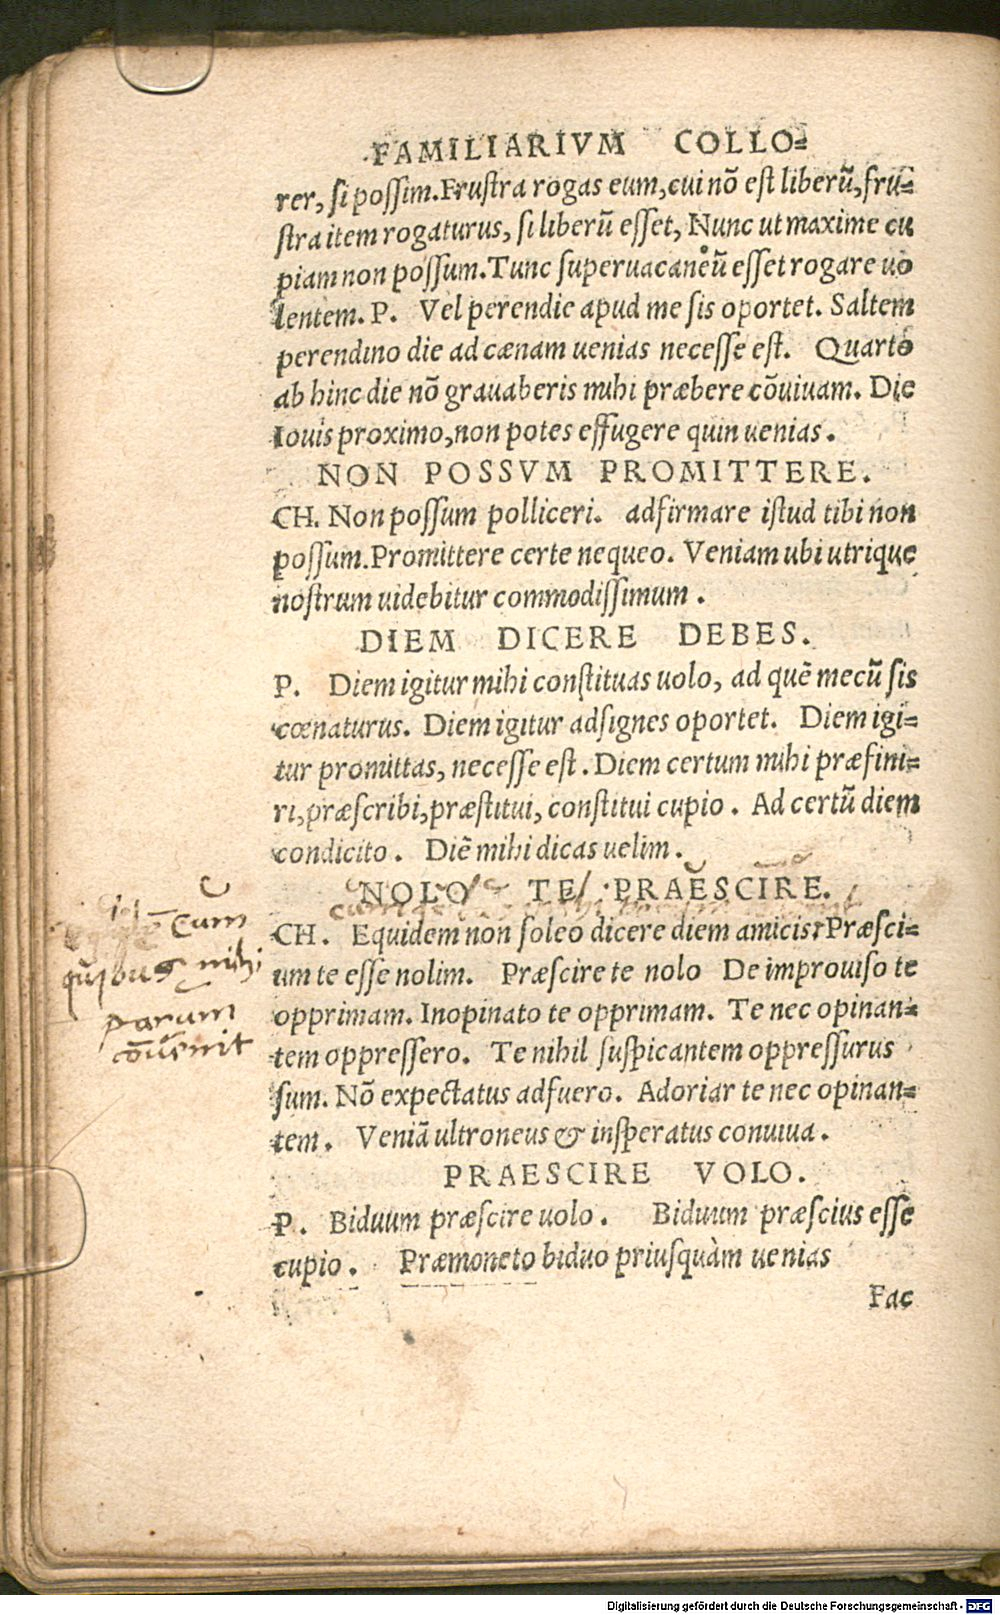 FAMILIARIVM COLLO-
rer, si possim. Frustra rogas eum, cui nõ est liberũ, fru-
stra item rogaturus, si liberũ esset, Nunc ut maxime cu
piam non possum. Tunc superuacaneũ esset rogare uo
lentem. P. Vel perendie apud me sis oportet. Saltem
perendino die ad cænam uenias necesse est. Quarto
ab hinc die nõ grauaberis mihi præbere cõuiuam. Die
Iouis proximo, non potes effugere quin uenias.
NON POSSVM PROMITTERE.
CH. Non possum polliceri. adfirmare istud tibi non
possum. Promittere certe nequeo. Veniam ubi utrique
nostrum uidebitur commodissimum.
DIEM DICERE DEBES.
P. Diem igitur mihi constituas uolo, ad quẽ mecũ sis
cœnaturus. Diem igitur adsignes oportet. Diem igi-
tur promittas, necesse est. Diem certum mihi præfini-
ri, præscribi, præstitui, constitui cupio. Ad certũ diem
condicito. Diẽ mihi dicas uelim.
NOLO TE PRAESCIRE.
CH. Equidem non soleo dicere diem amicis. Præsci-
um te esse nolim. Præscire te nolo De improuiso te
opprimam. Inopinato te opprimam. Te nec opinan-
tem oppressero. Te nihil suspicantem oppressurus
sum. Nõ expectatus adfuero. Adoriar te nec opinan-
tem. Veniã ultroneus & insperatus conuiua.
PRAESCIRE VOLO.
P. Biduum præscire uolo. Biduum præscius esse
cupio. Præmoneto biduo priusquàm uenias
Fac
cum
quibus mihi
parum
cõuenit
Digitalisierung gefördert durch die Deutsche Forschungsgemeinschaft - DFG